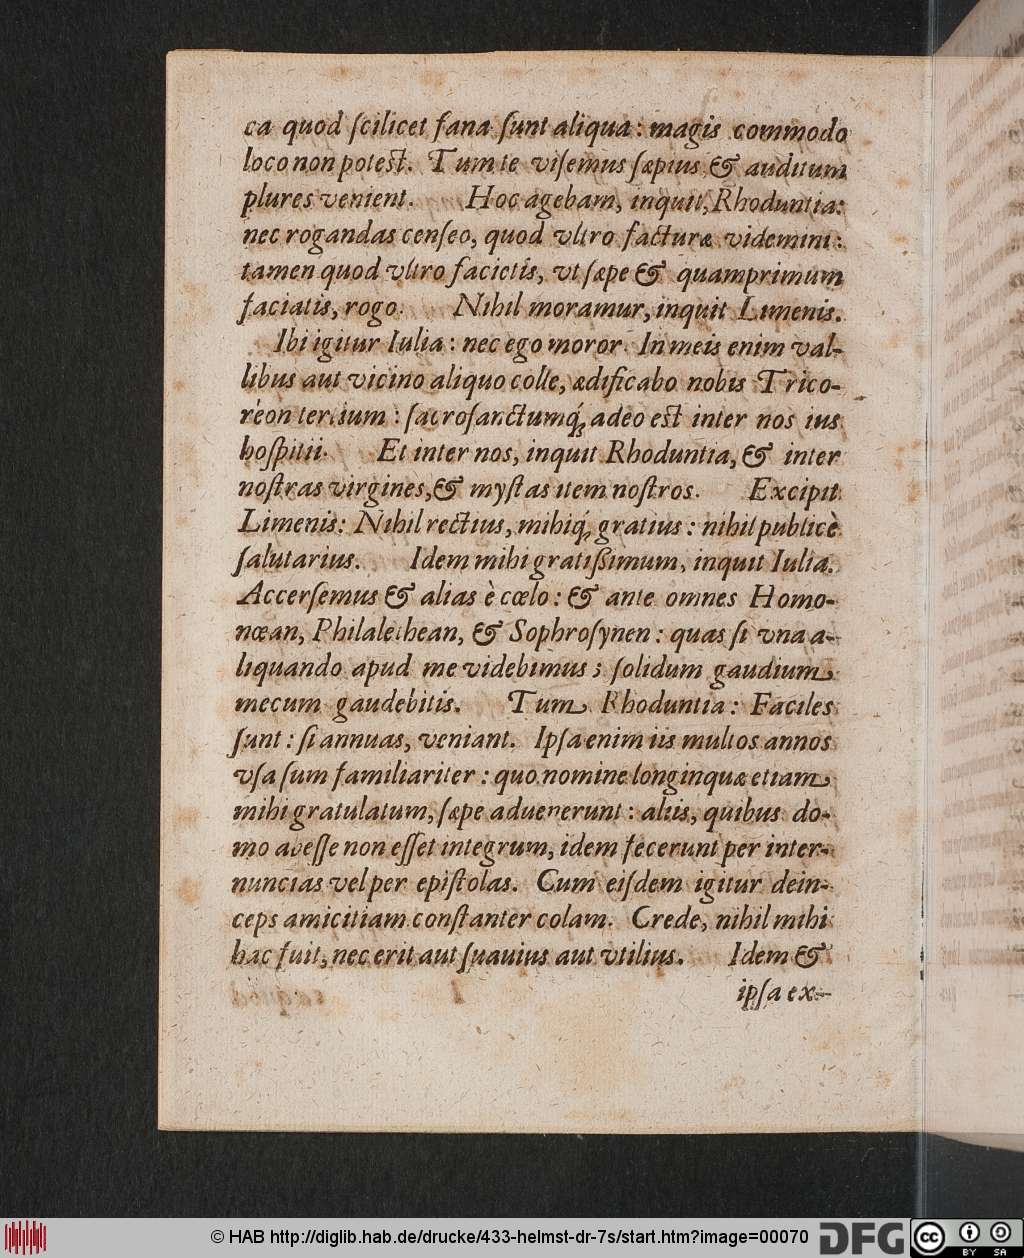 ca quod ſcilicet fana ſunt aliqua: magis commodo
loco non poteſt. Tum te viſemus ſæpius, & auditum
plures venient. Hoc agebam, inquit, Rhoduntia:
nec rogandas cenſeo, quod vltro facturæ videmini:
tamen quod vltro facietis, vt ſæpe & quamprimum
faciatis, rogo. Nihil moramur, inquit Limenis.
Ibi igitur Iulia: nec ego moror. In meis enim val-
libus aut vicino aliquo colle, ædificabo nobis Trico-
reon tertium: ſacroſanctumq́; adeo eſt inter nos ius
hoſpitii. Et inter nos, inquit Rhoduntia, & inter
noſtras virgines, & myſtas item noſtros. Excipit
Limenis: Nihil rectius, mihiq́; gratius: nihil publicè
ſalutarius. Idem mihi gratiſſimum, inquit Iulia.
Accerſemus & alias è cœlo: & ante omnes Homo-
nœan, Philalethean, & Sophroſynen: quas ſi vna a-
liquando apud me videbimus; ſolidum gaudium
mecum gaudebitis. Tum Rhoduntia: Faciles
ſunt: ſi annuas, veniant. Ipſa enim iis multos annos
vſa ſum familiariter: quo nomine longinquæ etiam
mihi gratulatum, ſæpe aduenerunt: aliis, quibus do-
mo abeſſe non eſſet integrum, idem fecerunt per inter-
nuncias vel per epiſtolas. Cum eiſdem igitur dein-
ceps amicitiam conſtanter colam. Crede, nihil mihi
hac fuit, nec erit aut ſuauius aut vtilius. Idem &
ipſa ex-
© HAB http://diglib.hab.de/drucke/433-helmst-dr-7s/start.htm?image=00070
DFG
cc
BY SA